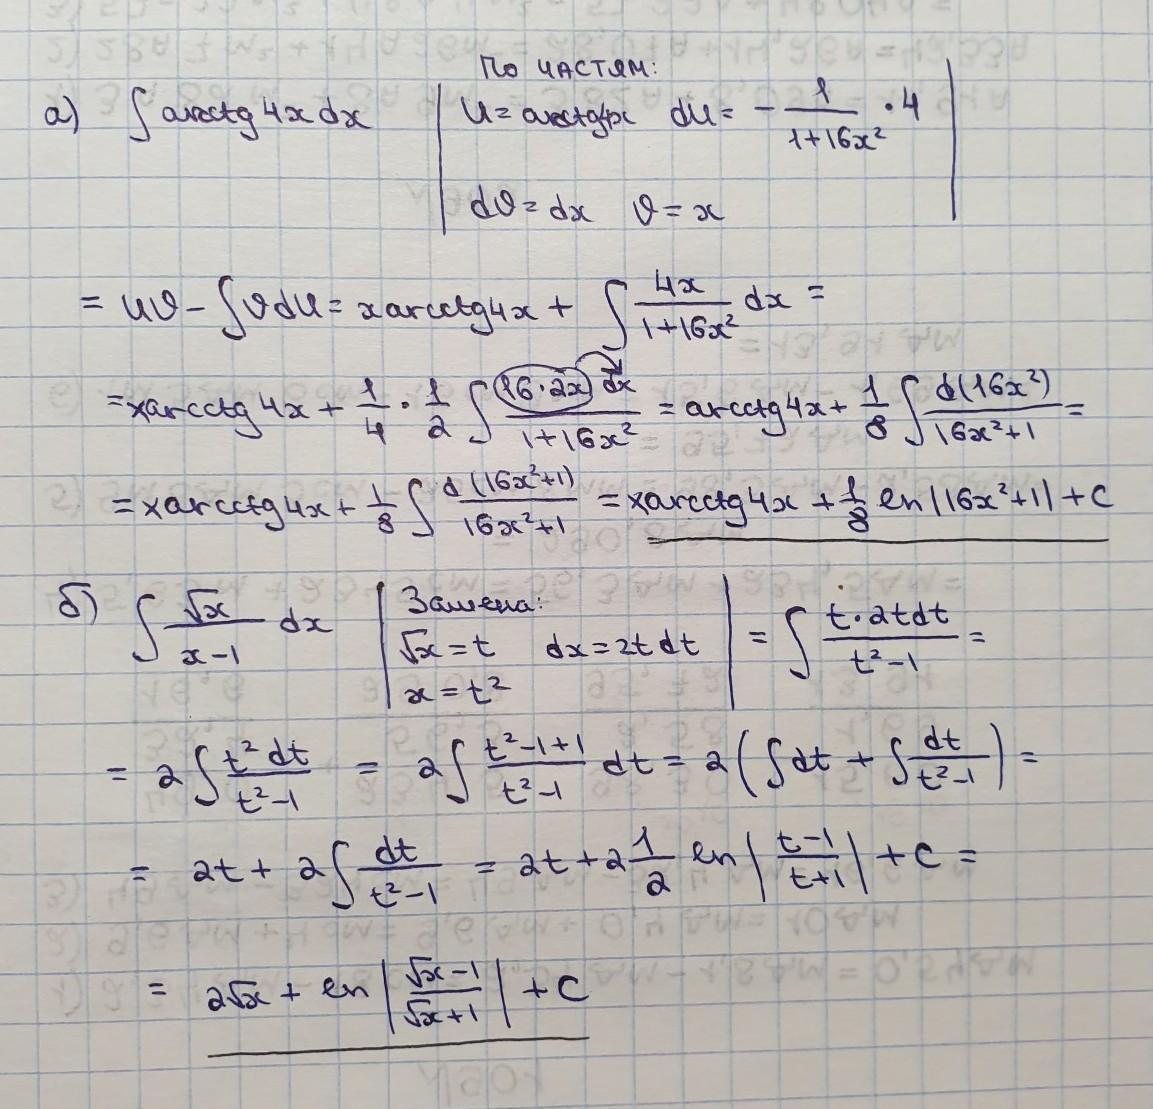 По частям:
а) ∫ arcctg 4x dx | U = arcctg4x dU = - 1/(1+16x²) · 4 |
dϑ = dx ϑ = x
= Uϑ - ∫ϑdU = x arcctg4x + ∫ 4x/(1+16x²) dx =
= xarcctg 4x + 1/4 · 1/2 ∫ (16·2x) dx/(1+16x²) = arcctg4x + 1/8 ∫ d(16x²)/(16x²+1) =
= xarcctg4x + 1/8 ∫ d(16x²+1)/(16x²+1) = xarcctg4x + 1/8 ln|16x²+1| + c
б) ∫ √x/(x-1) dx | Замена: √x = t dx = 2t dt x = t² | = ∫ t·2tdt/(t²-1) =
= 2∫ t² dt/(t²-1) = 2∫ (t²-1+1)/(t²-1) dt = 2(∫dt + ∫ dt/(t²-1)) =
= 2t + 2∫ dt/(t²-1) = 2t + 2 1/2 ln|(t-1)/(t+1)| + C =
= 2√x + ln|(√x-1)/(√x+1)| + C